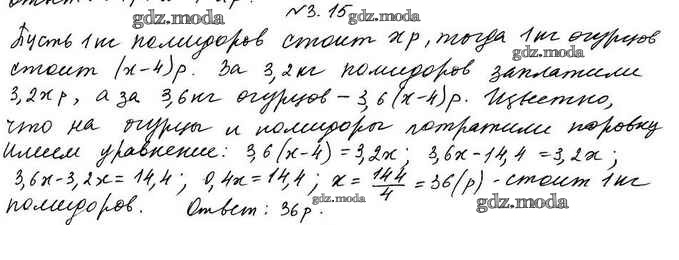 N3.15
gdz.moda
gdz.moda
Пусть 1 кг помидоров стоит xр, тогда 1 кг огурцов
gdz.moda
стоит (x-4)р. За 3,2кг помидоров заплатили
3,2xр, а за 3,6кг огурцов – 3,6(x-4)р. Известно,
gdz.moda
что на огурцы и помидоры потратили поровну
Имеем уравнение: 3,6(x-4)=3,2x; 3,6x-14,4=3,2x;
3,6x-3,2x=14,4; 0,4x=14,4; x=144/4=36(р)-стоит 1кг
помидоров. Ответ: 36р.
gdz.moda
gdz.moda